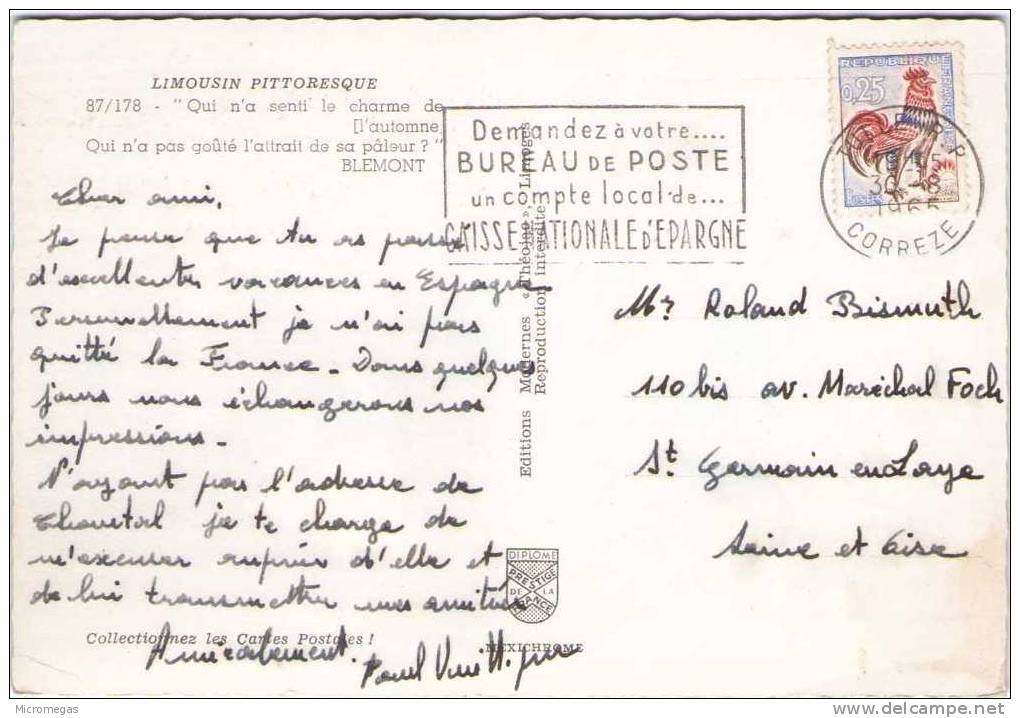 LIMOUSIN PITTORESQUE
87/178 - "Qui n'a senti le charme de
[l'automne
Qui n'a pas goûté l'attrait de sa pâleur ?"
BLEMONT
Cher ami,
Je pense que tu as passé
d'excellentes vacances en Espagne
Personnellement je n'ai pas
quitté la France - Dans quelques
jours nous échangerons nos
impressions -
N'ayant pas l'adresse de
Chantal je te charge de
m'excuser auprès d'elle et
de lui transmettre mes amitiés
Amicalement.
Paul
Collectionnez les Cartes Postales !
Editions Modernes « Théojac », Limoges
Reproduction interdite
DIPLOME
PRESTIGE
DE LA
FRANCE
MEXICHROME
Demandez à votre....
BUREAU DE POSTE
un compte local de...
CAISSE NATIONALE D'EPARGNE
REPUBLIQUE
0,25
30-8
1965
CORREZE
Mr Roland Bismuth
110 bis av. Maréchal Foch
St Germain en Laye
Seine et Oise
Micromegas
delcampe.net